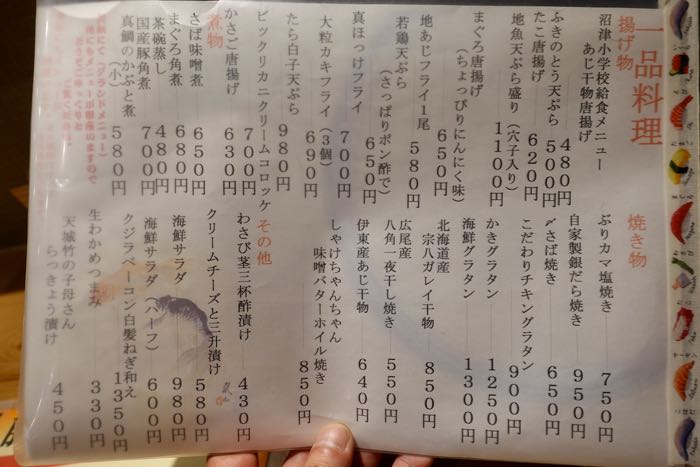 一品料理
揚げ物
沼津小学校給食メニュー
あじ干物唐揚げ 480円
ふきのとう天ぷら 500円
たこ唐揚げ 620円
地魚天ぷら盛り(穴子入り) 1100円
まぐろ唐揚げ
(ちょっぴりにんにく味) 650円
地あじフライ1尾 580円
若鶏天ぷら
(さっぱりポン酢で) 650円
真ほっけフライ 700円
大粒カキフライ(3個) 690円
たら白子天ぷら 980円
ビックリカニクリームコロッケ 700円
かさご唐揚げ 630円
煮物
さば味噌煮 650円
まぐろ角煮 680円
茶碗蒸し 480円
国産豚角煮 700円
真鯛のかぶと煮(小) 580円
焼き物
ぶりカマ塩焼き 750円
自家製銀だら焼き 950円
〆さば焼き 650円
こだわりチキングラタン 900円
かきグラタン 1250円
海鮮グラタン 1300円
北海道産
宗八ガレイ干物 850円
広尾産
八角一夜干し焼き 550円
伊東産あじ干物 640円
しゃけちゃんちゃん
味噌バターホイル焼き 850円
その他
わさび茎三杯酢漬け 430円
クリームチーズと三升漬け 580円
海鮮サラダ 980円
海鮮サラダ(ハーフ) 600円
クジラベーコン白髪ねぎ和え 1350円
生わかめつまみ 330円
天城竹の子母さん
らっきょう漬け 450円